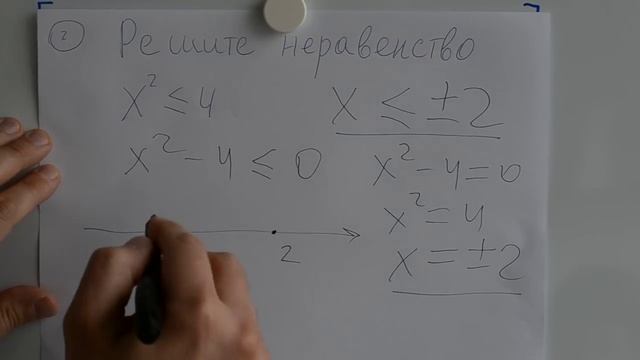 2 Решите неравенство
x² ≤ 4
x ≤ ±2
x² - 4 ≤ 0
x² - 4 = 0
x² = 4
x = ±2
2